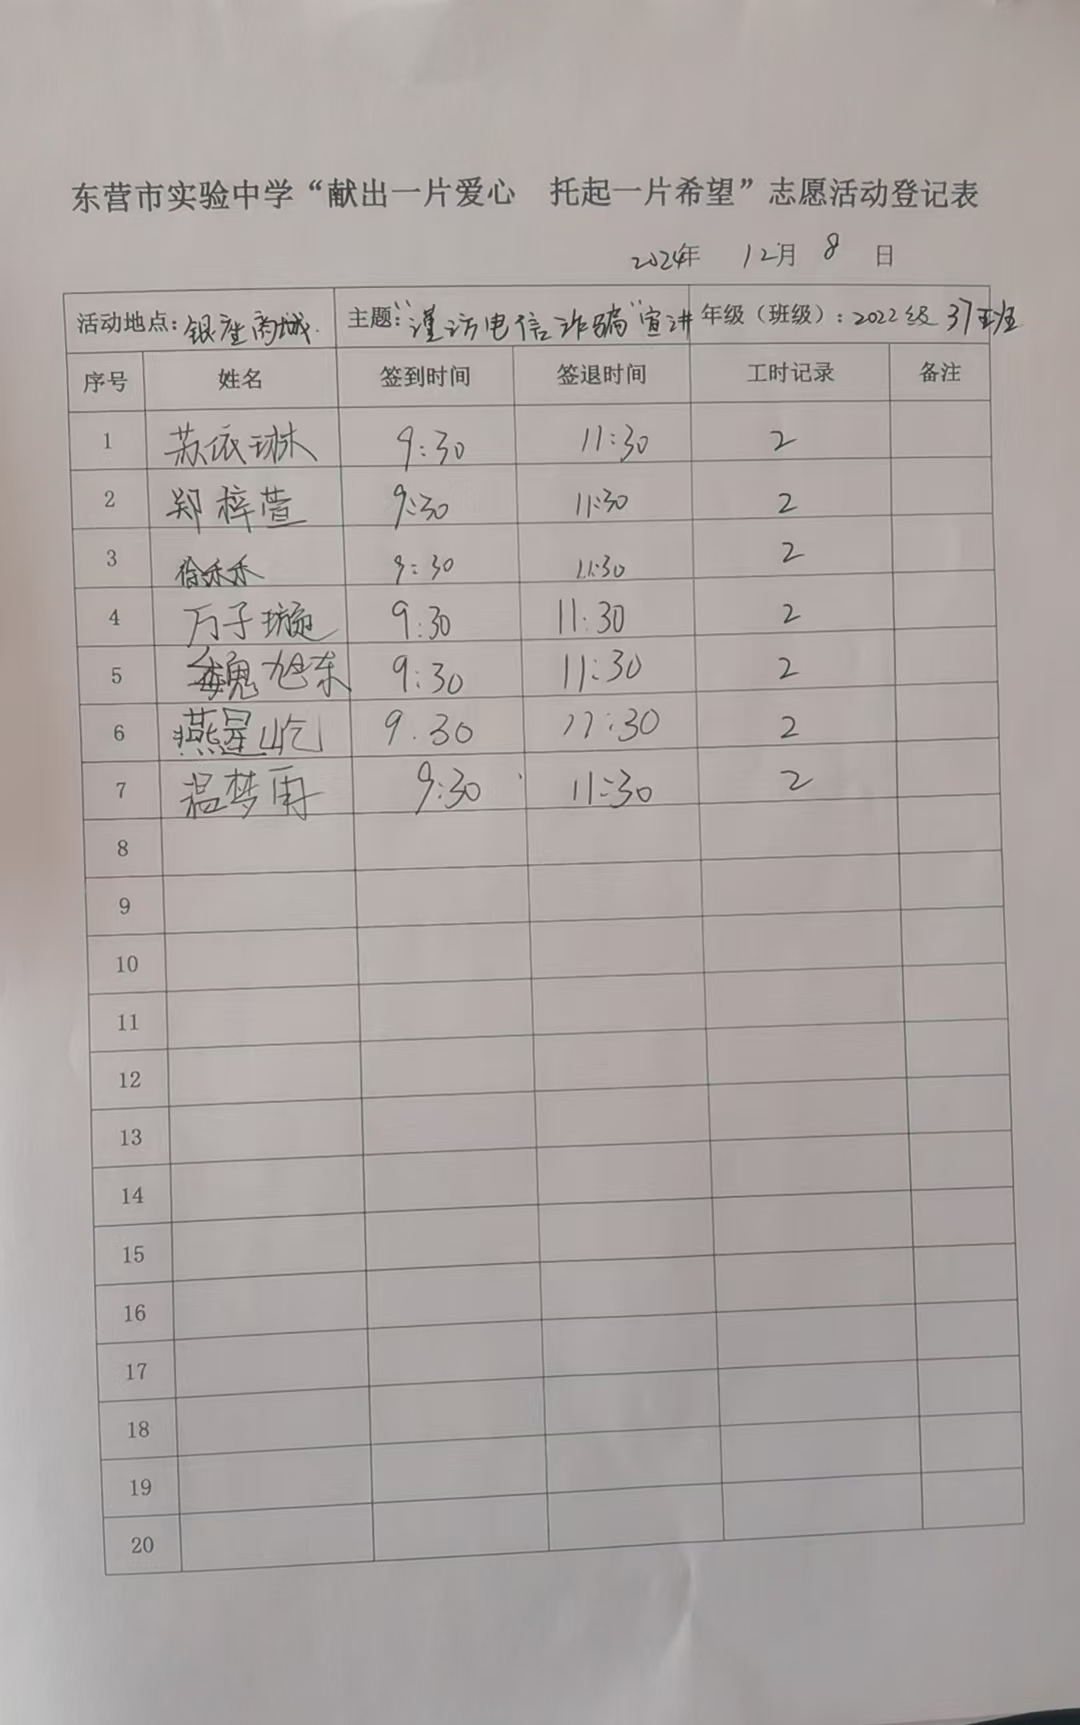 东营市实验中学“献出一片爱心 托起一片希望”志愿活动登记表
2024年 12月 8 日
活动地点:银座商城. 主题:“谨访电信诈骗”宣讲 年级（班级）: 2022级 37班
序号 姓名 签到时间 签退时间 工时记录 备注
1 苏依琳 9:30 11:30 2
2 郑梓萱 9:30 11:30 2
3 徐禾禾 9:30 11:30 2
4 万子璇 9:30 11:30 2
5 魏旭东 9:30 11:30 2
6 燕星屹 9.30 11:30 2
7 温梦雨 9:30 11:30 2
8
9
10
11
12
13
14
15
16
17
18
19
20